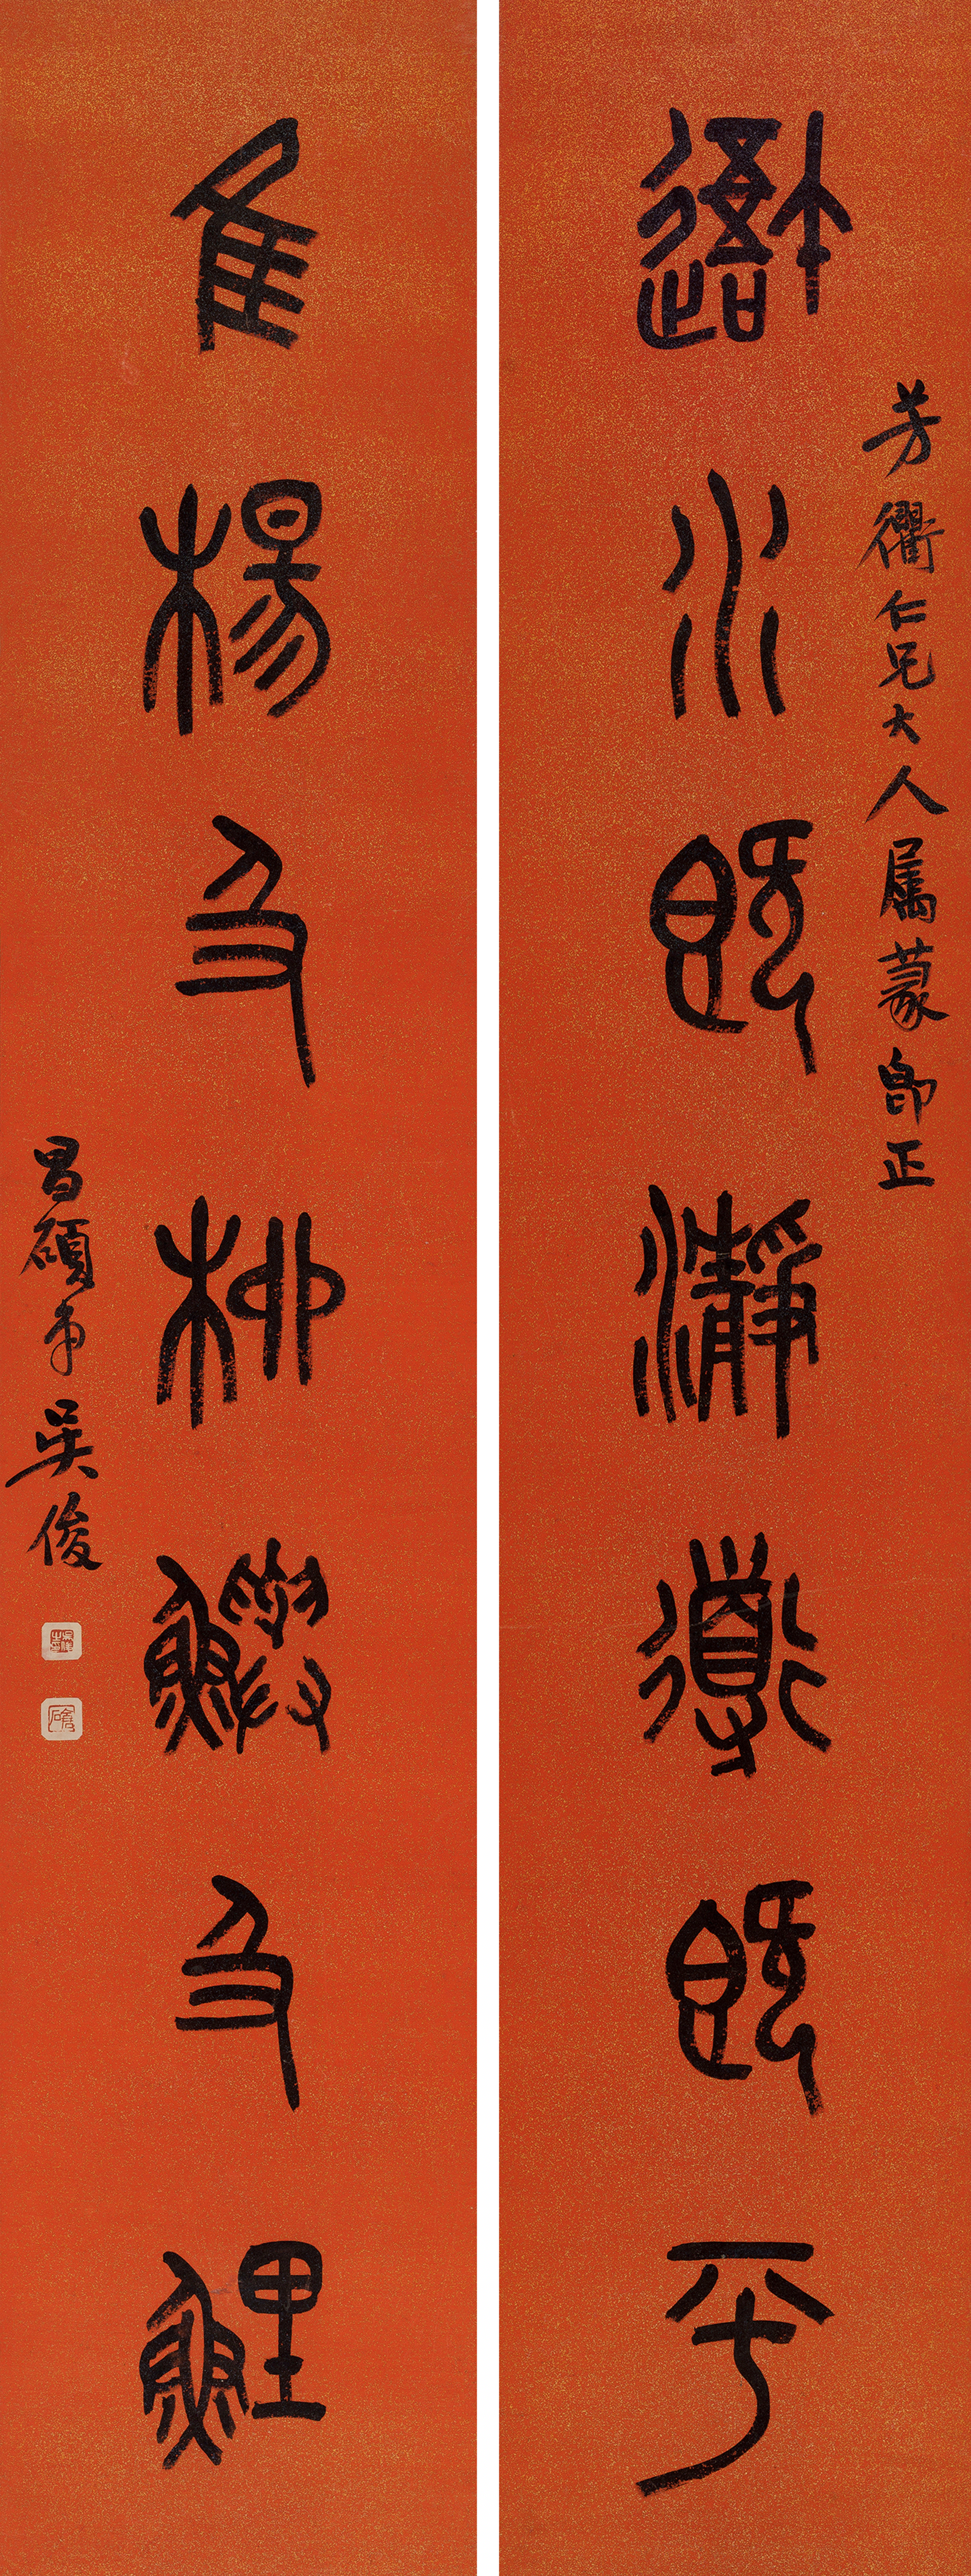 芳衢仁兄大人属篆即正
水既瀞導既平
隹楊及柳鱮及鯉
昌碩弟吳俊